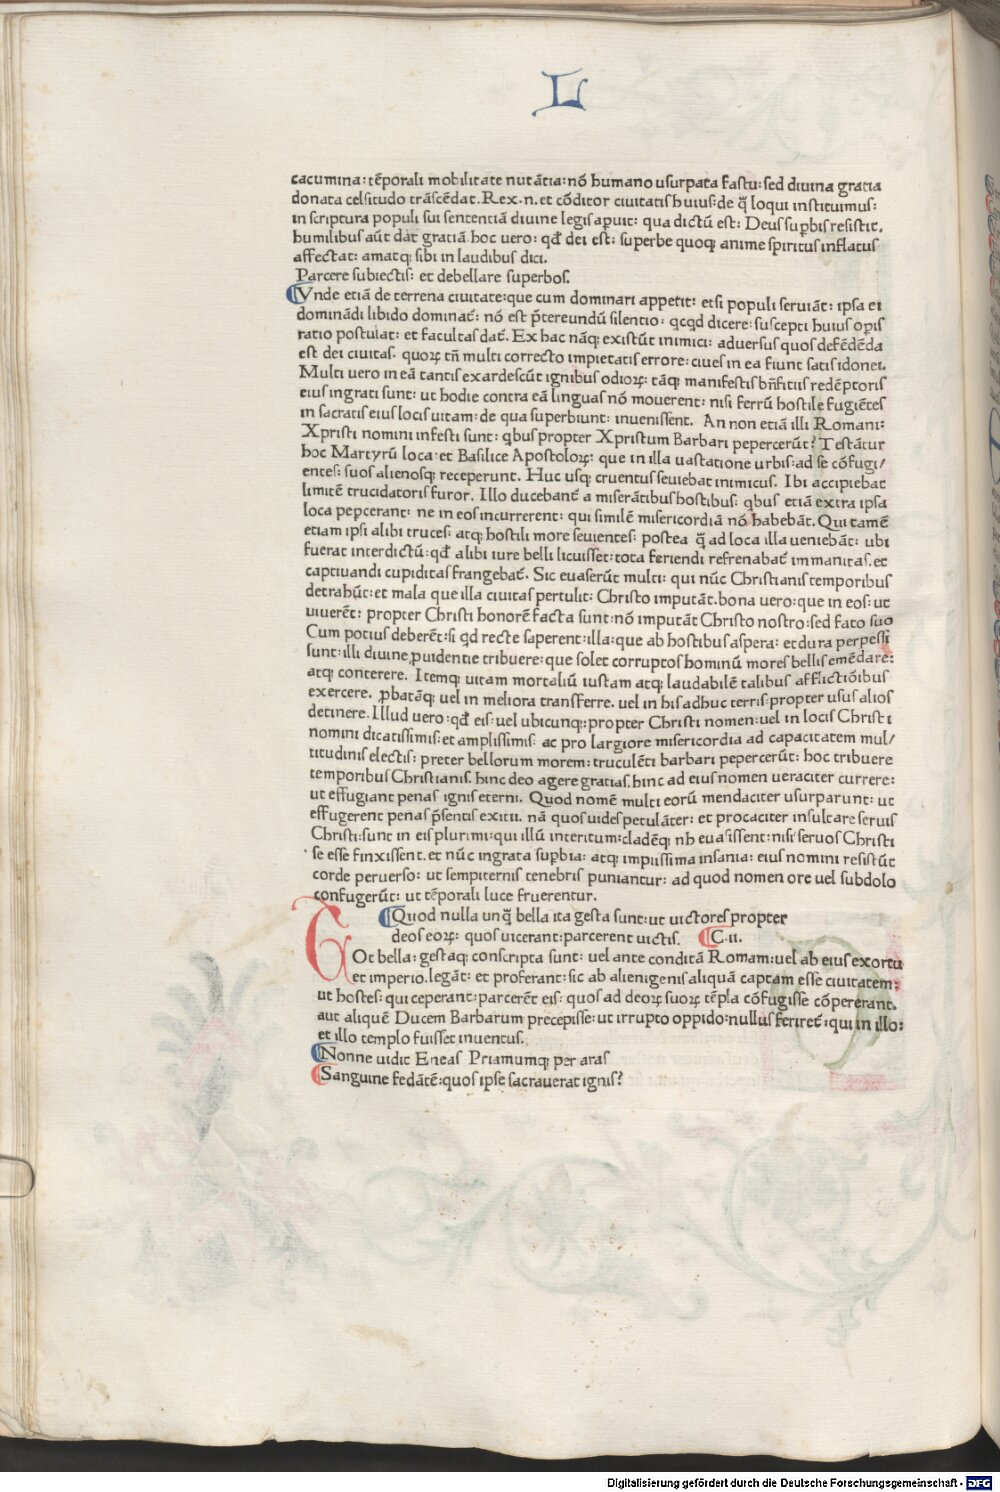 L
cacumina: tēporali mobilitate nutātia: nō humano usurpata fastu: sed diuina gratia
donata celsitudo trāscēdat. Rex.n. et cōditor ciuitatis huius: de q̄ loqui instituimus:
in scriptura populi sui sententiā diuine legis aꝑuit: qua dictū est: Deus suꝑbis resistit.
humilibus aūt dat gratiā. hoc uero: qđ dei est: superbe quoqꝫ anime spiritus inflatus
affectat: amatqꝫ sibi in laudibus dici.
Parcere subiectis: et debellare superbos.
Vnde etiā de terrena ciuitate: que cum dominari appetit: etsi populi seruiāt: ipsa ei
dominādi libido dominať: nō est p̄tereundū silentio: qcqd dicere: suscepti huius oꝑis
ratio postulat: et facultas dať. Ex hac nāqꝫ existūt inimici: aduersus quos defēdēda
est dei ciuitas. quoꝝ tn̄ multi correcto impietatis errore: ciues in ea fiunt satis idonei.
Multi uero in eā tantis exardescūt ignibus odioꝝ: tāqꝫ manifestis bn̄ficiis redēptoris
eius ingrati sunt: ut hodie contra eā linguas nō mouerent: nisi ferrū hostile fugiētes
in sacratis eius locis uitam: de qua superbiunt: inuenissent. An non etiā illi Romani:
Xpristi nomini infesti sunt: qbus propter Xpristum Barbari pepercerūt? Testātur
hoc Martyrū loca: et Basilice Apostoloꝝ: que in illa uastatione urbis: ad se cōfugi/
entes: suos alienosqꝫ receperunt. Huc usqꝫ cruentus seuiebat inimicus. Ibi accipiebat
limitē trucidatoris furor. Illo ducebanť a miserātibus hostibus: qbus etiā extra ipsa
loca peꝑcerant: ne in eos incurrerent: qui similē misericordiā nō habebāt. Qui tamē
etiam ipsi alibi truces: atqꝫ hostili more seuientes: postea q̄ ad loca illa ueniebāt: ubi
fuerat interdictū: qđ alibi iure belli licuisset: tota feriendi refrenabať immanitas. et
captiuandi cupiditas frangebať. Sic euaserūt multi: qui nūc Christianis temporibus
detrahūt: et mala que illa ciuitas pertulit: Christo imputāt. bona uero: que in eos: ut
uiuerēt: propter Christi honorē facta sunt: nō imputāt Christo nostro: sed fato suo
Cum potius deberēt: si qd recte saperent: illa: que ab hostibus aspera: et dura perpessi
sunt: illi diuine ꝓuidentie tribuere: que solet corruptos hominū mores bellis emēdare:
atqꝫ conterere. Itemqꝫ uitam mortaliū iustam atqꝫ laudabilē talibus afflictiōibus
exercere. ꝓbatāqꝫ uel in meliora transferre. uel in his adhuc terris: propter usus alios
detinere. Illud uero: qđ eis: uel ubicunqꝫ: propter Christi nomen: uel in locis Christi
nomini dicatissimis: et amplissimis: ac pro largiore misericordia ad capacitatem mul/
titudinis electis: preter bellorum morem: truculēti barbari pepercerūt: hoc tribuere
temporibus Christianis. hinc deo agere gratias. hinc ad eius nomen ueraciter currere:
ut effugiant penas ignis eterni. Quod nomē multi eorū mendaciter usurparunt: ut
effugerent penas p̄sentis exitii. nā quos uides petulāter: et procaciter insultare seruis
Christi: sunt in eis plurimi: qui illū interitum: cladēqꝫ nō euasissent: nisi seruos Christi
se esse finxissent. et nūc ingrata suꝑbia: atqꝫ impiissima insania: eius nomini resistūt
corde peruerso: ut sempiternis tenebris puniantur: ad quod nomen ore uel subdolo
confugerūt: ut tēporali luce fruerentur.
Quod nulla unq̄ bella ita gesta sunt: ut uictores propter
deos eoꝝ: quos uicerant: parcerent uictis. C.ii.
TOt bella: gestaqꝫ conscripta sunt: uel ante conditā Romam: uel ab eius exortu
et imperio. legāt: et proferant: sic ab alienigenis aliquā captam esse ciuitatem:
ut hostes: qui ceperant: parcerēt eis: quos ad deoꝝ suoꝝ tēpla cōfugisse cōpererant.
aut aliquē Ducem Barbarum precepisse: ut irrupto oppido: nullus ferireť: qui in illo:
et illo templo fuisset inuentus.
Nonne uidit Eneas Priamumqꝫ per aras
Sanguine fedātē: quos ipse sacrauerat ignis?
Digitalisierung gefördert durch die Deutsche Forschungsgemeinschaft - DFG